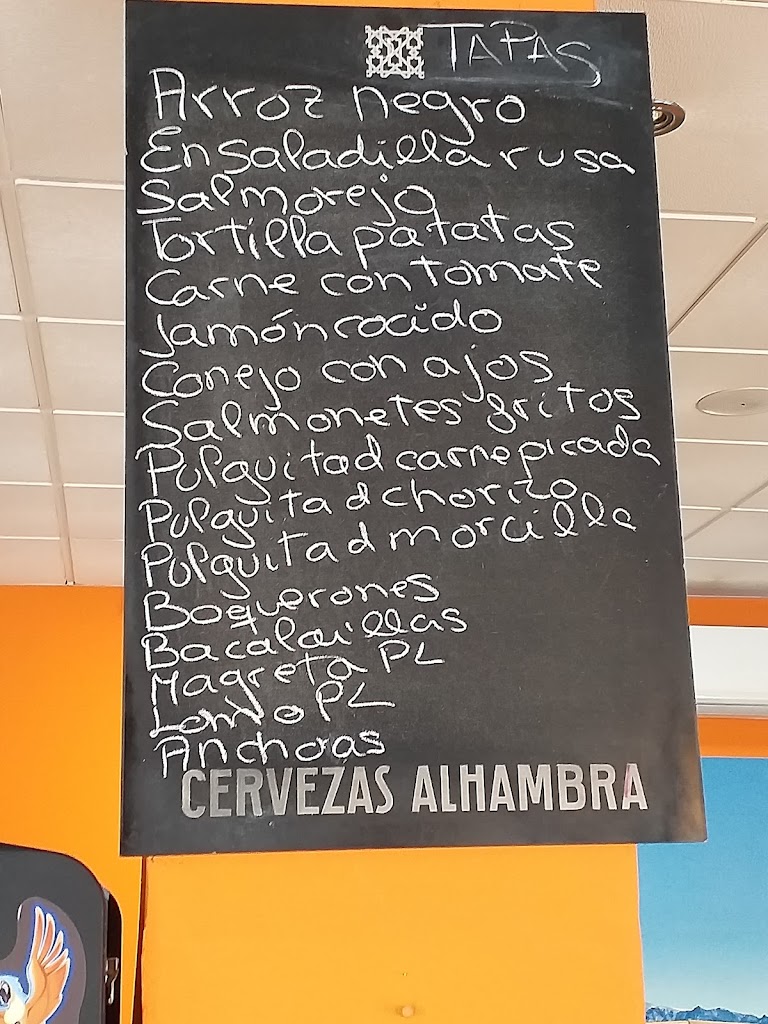 TAPAS
Arroz negro
Ensaladilla rusa
Salmorejo
Tortilla patatas
Carne con tomate
Jamón cocido
Conejo con ajos
Salmonetes fritos
Pulguita d carne picada
Pulguita d chorizo
Pulguita d morcilla
Boquerones
Bacalaillas
Magreta PL
Lomo PL
Anchoas
CERVEZAS ALHAMBRA